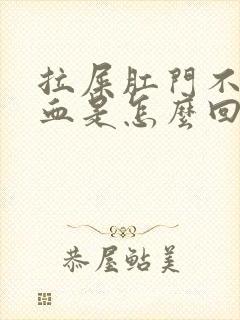 拉屎肛門不
血是怎麼回
恭屋鮎美